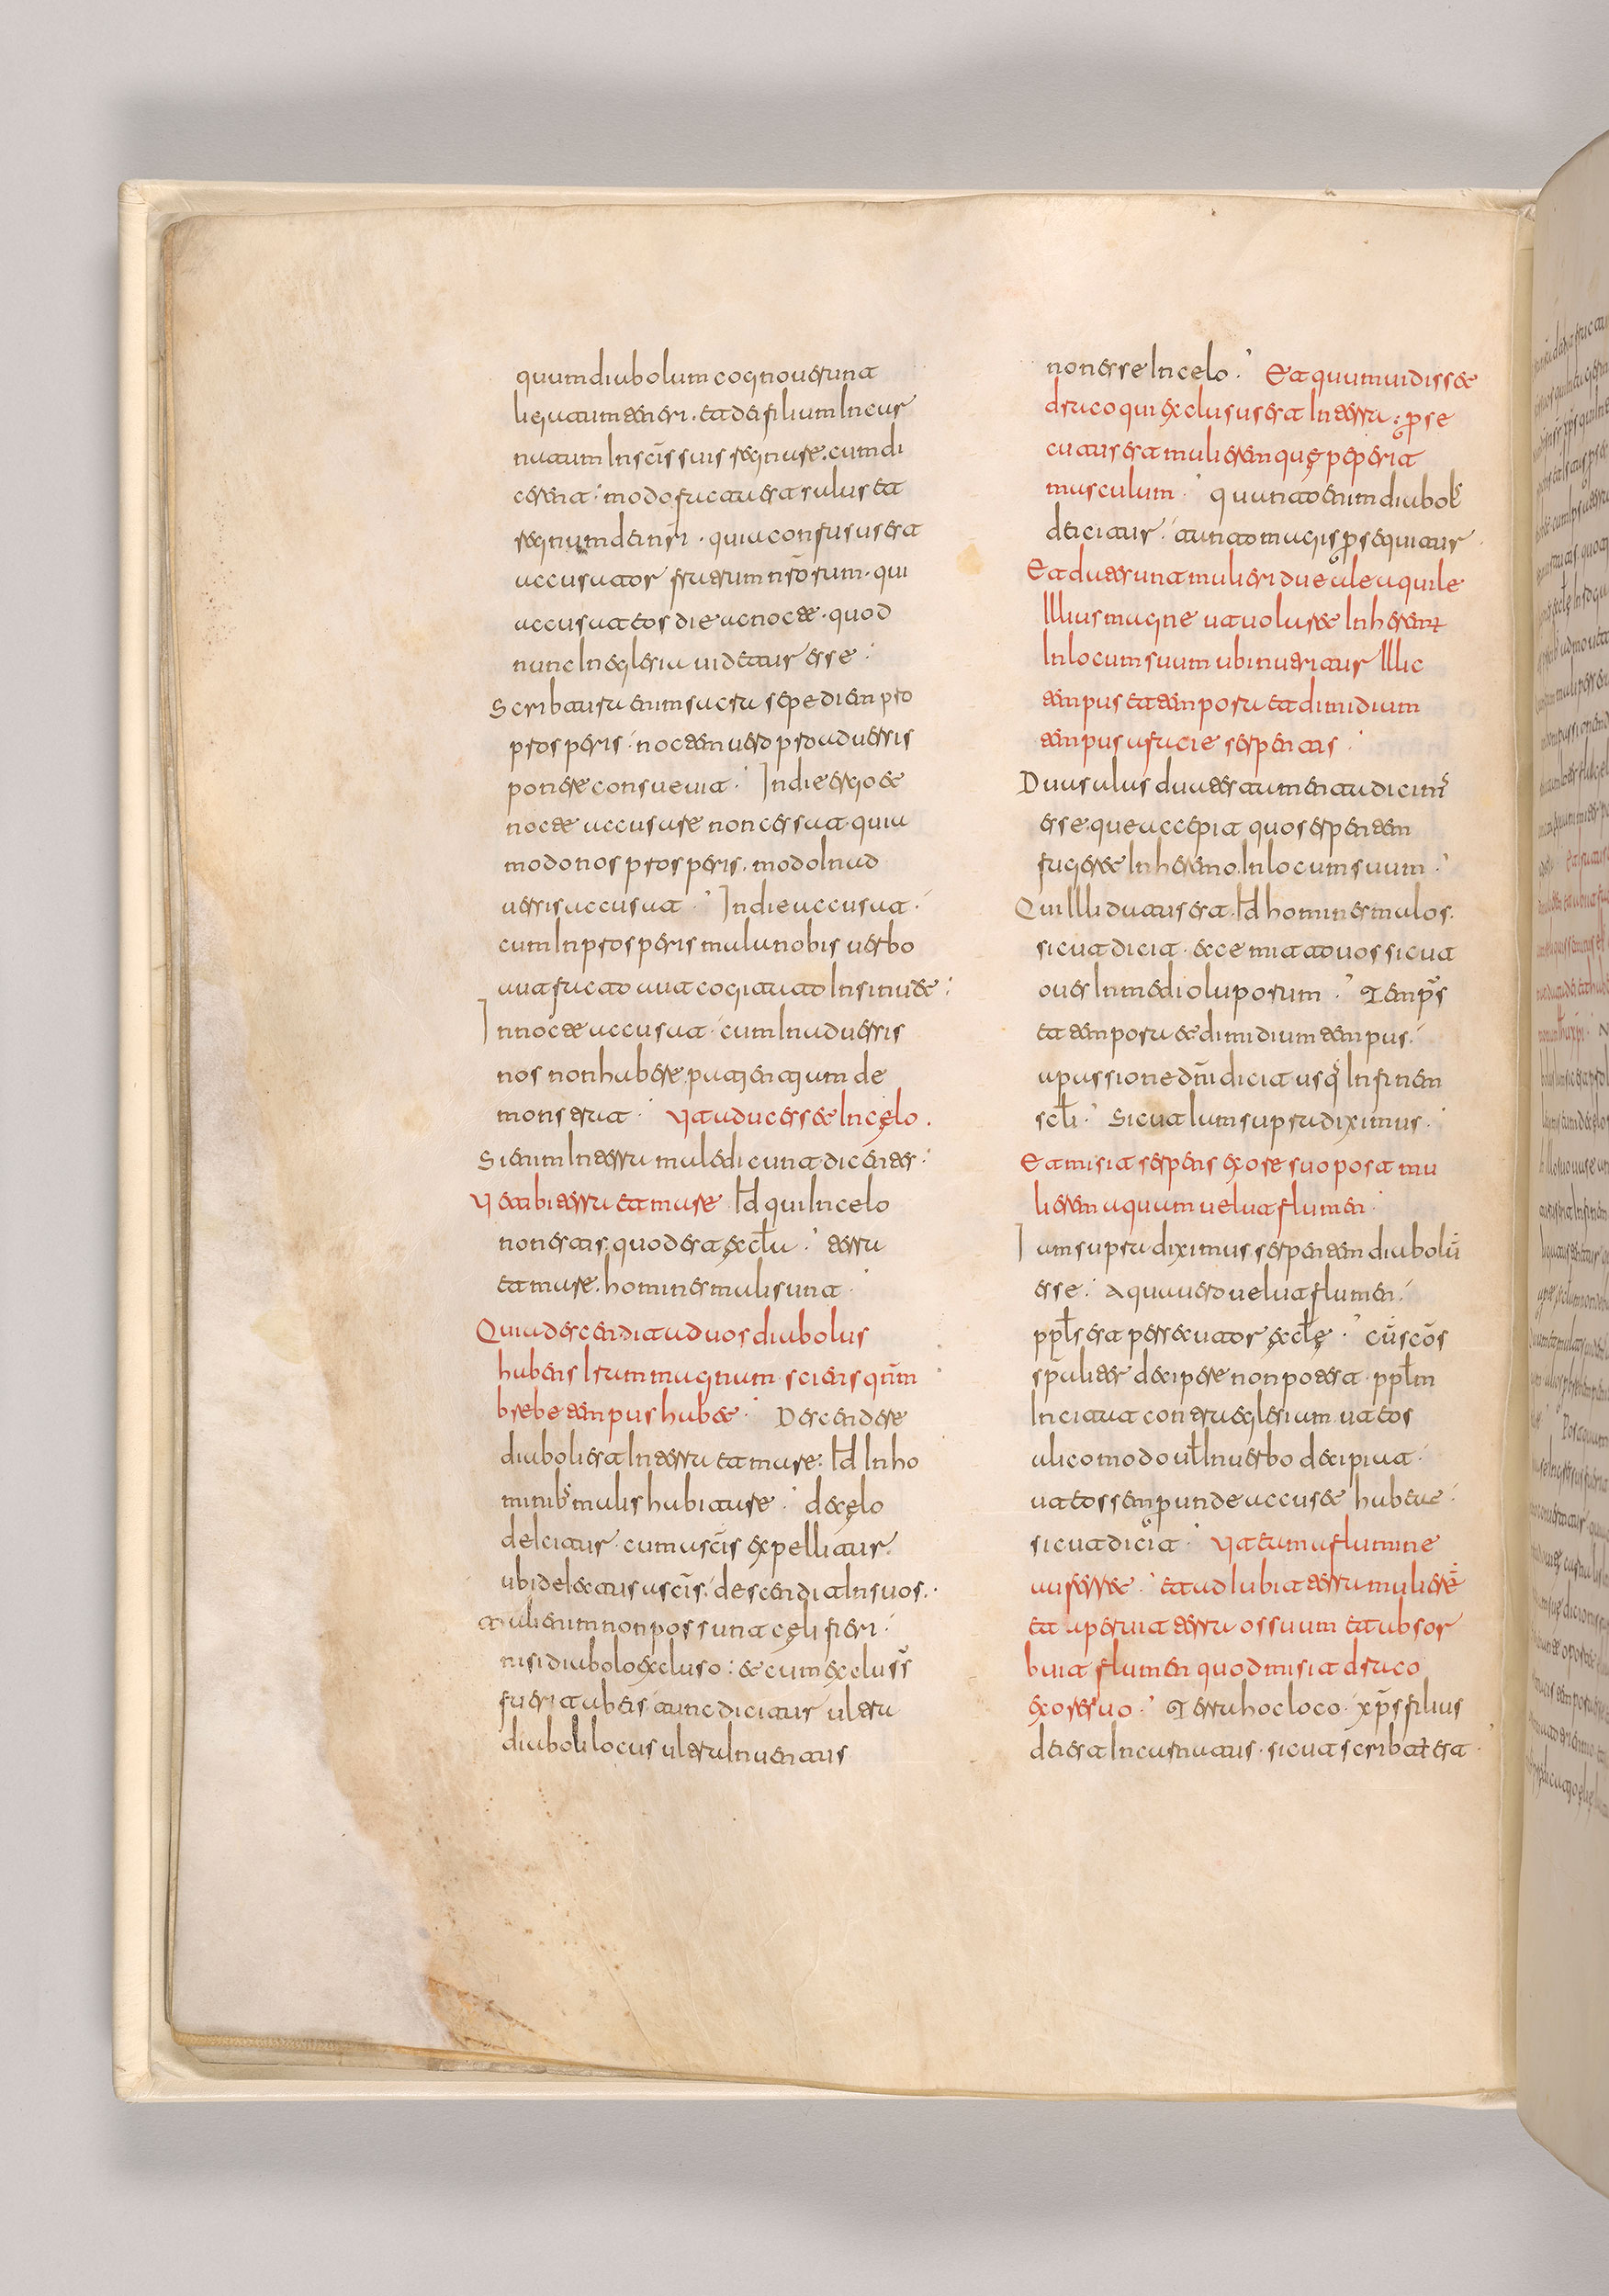 quum diabolum cognoverunt
ligatum teneri. et dei filium incar
natum in scīs suis regnare. cum di
cerent. modo facta est salus et
regnum dei nsri. quia confusus est
accusator fratrum nsrōrum. qui
accusat eos die ac nocte. quod
nunc in eglesia videtur esse.
Scribtura enim sacra sepe diem pro
prosperis. noctem vero pro adversis
ponere consuevit. In die ergo et
nocte accusare non cessat. quia
modo nos prosperis. modo in ad
versis accusat. In die accusat.
cum in prosperis mala nobis verbo
aut facto aut cogitato insinuet.
In nocte accusat. cum in adversis
nos non habere patientiam de
monstrat. Vt aduc esset in cęlo.
Si enim in terra maledicunt dicentes.
Ve tibi terra et mare. Id qui in celo
non estis. quod est eccła. terra
et mare. homines mali sunt.
Quia descendit ad vos diabolus
habens iram magnam sciens qnm̄
brebe tempus habet. Descendere
diaboli est in terra et mare. Id in ho
minibs malis habitare. de cęlo
deicitur. cum a scīs expellitur.
ubi deiectus a scīs. descendit in suos.
Talienim non possunt cęli fieri.
nisi diabolo excluso. et cum exclus̄s
fuerit ab eis. tunc dicitur ultra
diaboli locus ultra inventus
non esse in celo. Et quum vidisset
draco qui exclusus est in terra. perse
cutus est mulierem quę peperit
musculum. quanto enim diabols
deicitur. tanto magis persequitur.
Et date sunt mulieri due ale aquile
illius magne ut volaret in heremum
in locum suum ubi nutritur illic
tempus et tempora et dimidium
tempus a facie serpentis.
Duas alas dua testamenta dicim̄s
esse. que accepit quo serpentem
fugeret in heremo. in locum suum.
Qui illi datus est. Id homines malos.
sicut dicit. ecce mitto vos sicut
oves in medio luporum. Temps̄
et tempora et dimidium tempus.
a passione dnī dicit usq in finem
scłi. Sicut iam supra diximus.
Et misit serpens ex ore suo post mu
lierem aquam velut flumen.
Iam supra diximus serpentem diabolū
esse. Aqua vero velut flumen.
ppłs est persecutor eccłę. cū scōs
spāliter decipere non potest. ppłm
incitat contra eglesiam. ut eos
alico modo uł in verbo decipiat.
ut eos semper unde accuset habeat.
sicut dicit. Vt eum a flumine
auferret. et adiubit terra mulierē
et aperuit terra os suum et absor
buit flumen quod misit draco
ex ore suo. Terra hoc loco. xp̄s filius
dei est incarnatus. sicut scribtum est.